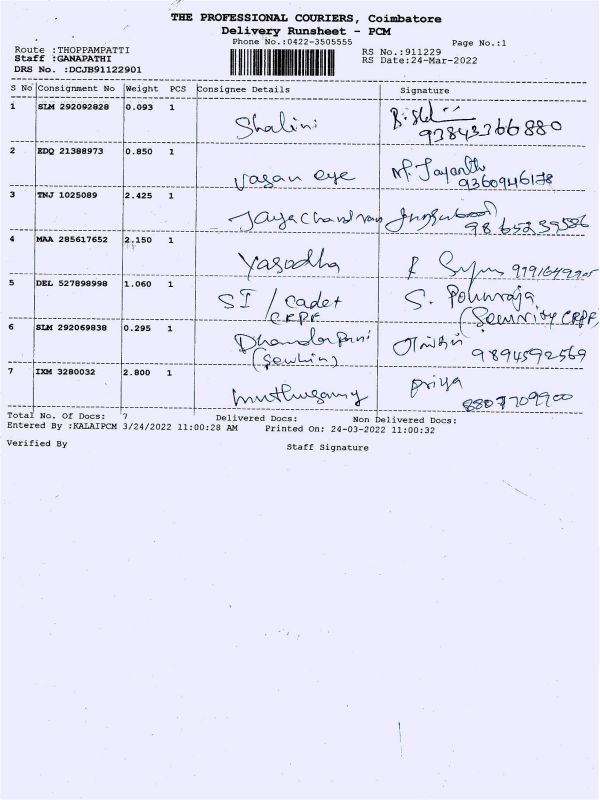 THE PROFESSIONAL COURIERS, Coimbatore
Delivery Runsheet - PCM
Phone No.:0422-3505555 Page No.:1
Route :THOPPAMPATTI RS No.:911229
Staff :GANAPATHI RS Date:24-Mar-2022
DRS No. :DCJB91122901
S No Consignment No Weight PCS Consignee Details Signature
1 SLM 292092828 0.093 1
Shalini 9384336 6880
2 EDQ 21388973 0.850 1
vasan eye M. Jayanthi
9360946178
3 TNJ 1025089 2.425 1
Jayachandran
4 MAA 285617652 2.150 1
Yasodha
5 DEL 527898998 1.060 1
SI / Cadet S. Ponraja
CRPF (Security CRPF,
6 SLM 292069838 0.295 1
9894592569
7 IXM 3280032 2.800 1
muthusamy priya
8807709900
Total No. Of Docs: 7 Delivered Docs: Non Delivered Docs:
Entered By :KALAIPCM 3/24/2022 11:00:28 AM Printed On: 24-03-2022 11:00:32
Verified By Staff Signature